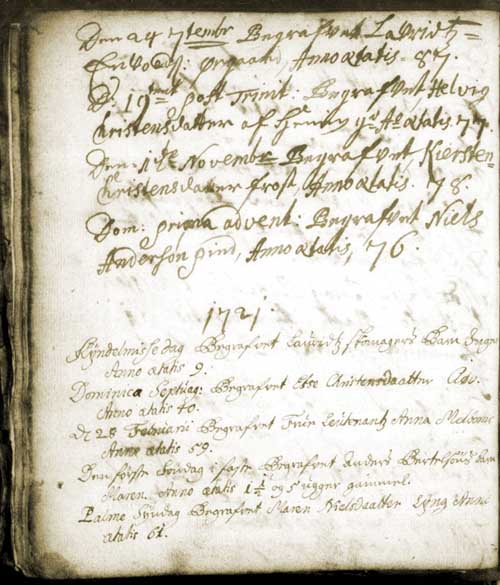 Den 24 7tembr Begrafvet Lauridtz
Anno ætatis 87.
D: 19 post Trinit: Begrafvet Helvig
Christensdatter af ætatis 77
Den 1 Novembr Begrafvet Kiersten
Christensdatter frost, Anno ætatis. 78.
Dom: prima advent: Begrafvet Niels
Anderson pind, Anno ætatis, 76.
1721.
Kyndelmisse dag Begrafvet Lauridtz Skomagers Barn
Anno ætatis 9.
Dominica Septuag: Begrafvet Else Christensdaatter
Anno ætatis 40.
28 Februarii Begrafvet Frue Leutenantz Anna
Anno ætatis 59.
Den første Søndag i faste Begrafvet Anders Bertelsøns barn
Maren. Anno ætatis 1½ og 5 ugger gammel.
Palme Søndag Begrafvet Maren Nielsdaatter Anno
ætatis 61.